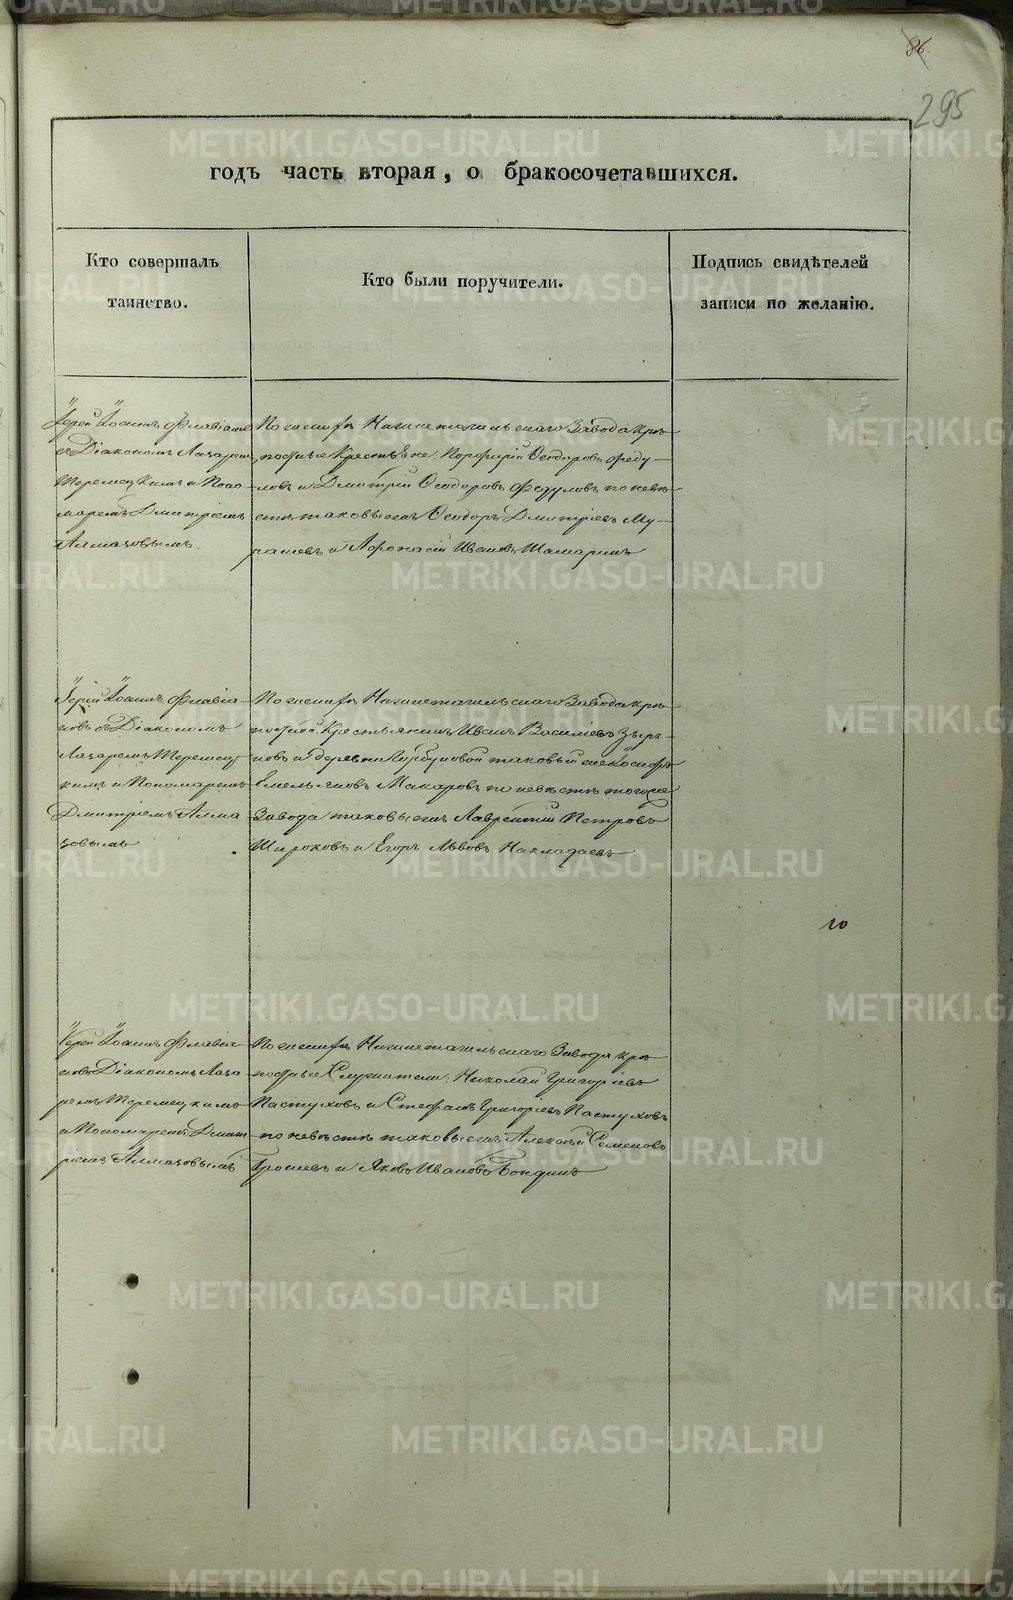 86.
295
годъ часть вторая, о бракосочетавшихся.
Кто совершалъ
таинство.
Кто были поручители.
Подпись свидѣтелей
записи по желанію.
Іерей Іоаннъ Флавіановъ
съ Діакономъ Лазаремъ
Теремецкимъ и Поно-
маремъ Дмитріемъ
Алмазовымъ.
По женихѣ Нижнетагильскаго Завода крѣ-
постные Крестьяне: Порфирій Ѳеодоровъ Феду-
ловъ и Дмитрій Ѳеодоровъ Федуловъ по невѣ-
стѣ таковые жъ Ѳеодоръ Дмитріевъ Му-
рашевъ и Афонасій Ивановъ Шамаринъ
Іерей Іоаннъ Флавіа-
новъ съ Діакономъ
Лазаремъ Теремец-
кимъ и Пономаремъ
Дмитріемъ Алма-
зовымъ
По женихѣ Нижнетагильскаго Завода крѣ-
постной Крестьянинъ Иванъ Васильевъ Зыря-
новъ и деревни таковый же Іосифъ
Емельяновъ Макаровъ по невѣстѣ того же
Завода таковые жъ Лаврентій Петровъ
Широковъ и Егоръ Львовъ Накладаевъ
10
Іерей Іоаннъ Флавіа-
новъ Діакономъ Лаза-
ремъ Теремецкимъ
и Пономаремъ Дмит-
ріемъ Алмазовымъ
По женихѣ Нижнетагильскаго Завода крѣ-
постные Служители: Николай Григорьевъ
Пастуховъ и Стефанъ Григорьевъ Пастуховъ
по невѣстѣ таковые жъ Алексѣй Семеновъ
и Яковъ Ивановъ Бондинъ
METRIKI.GASO-URAL.RU